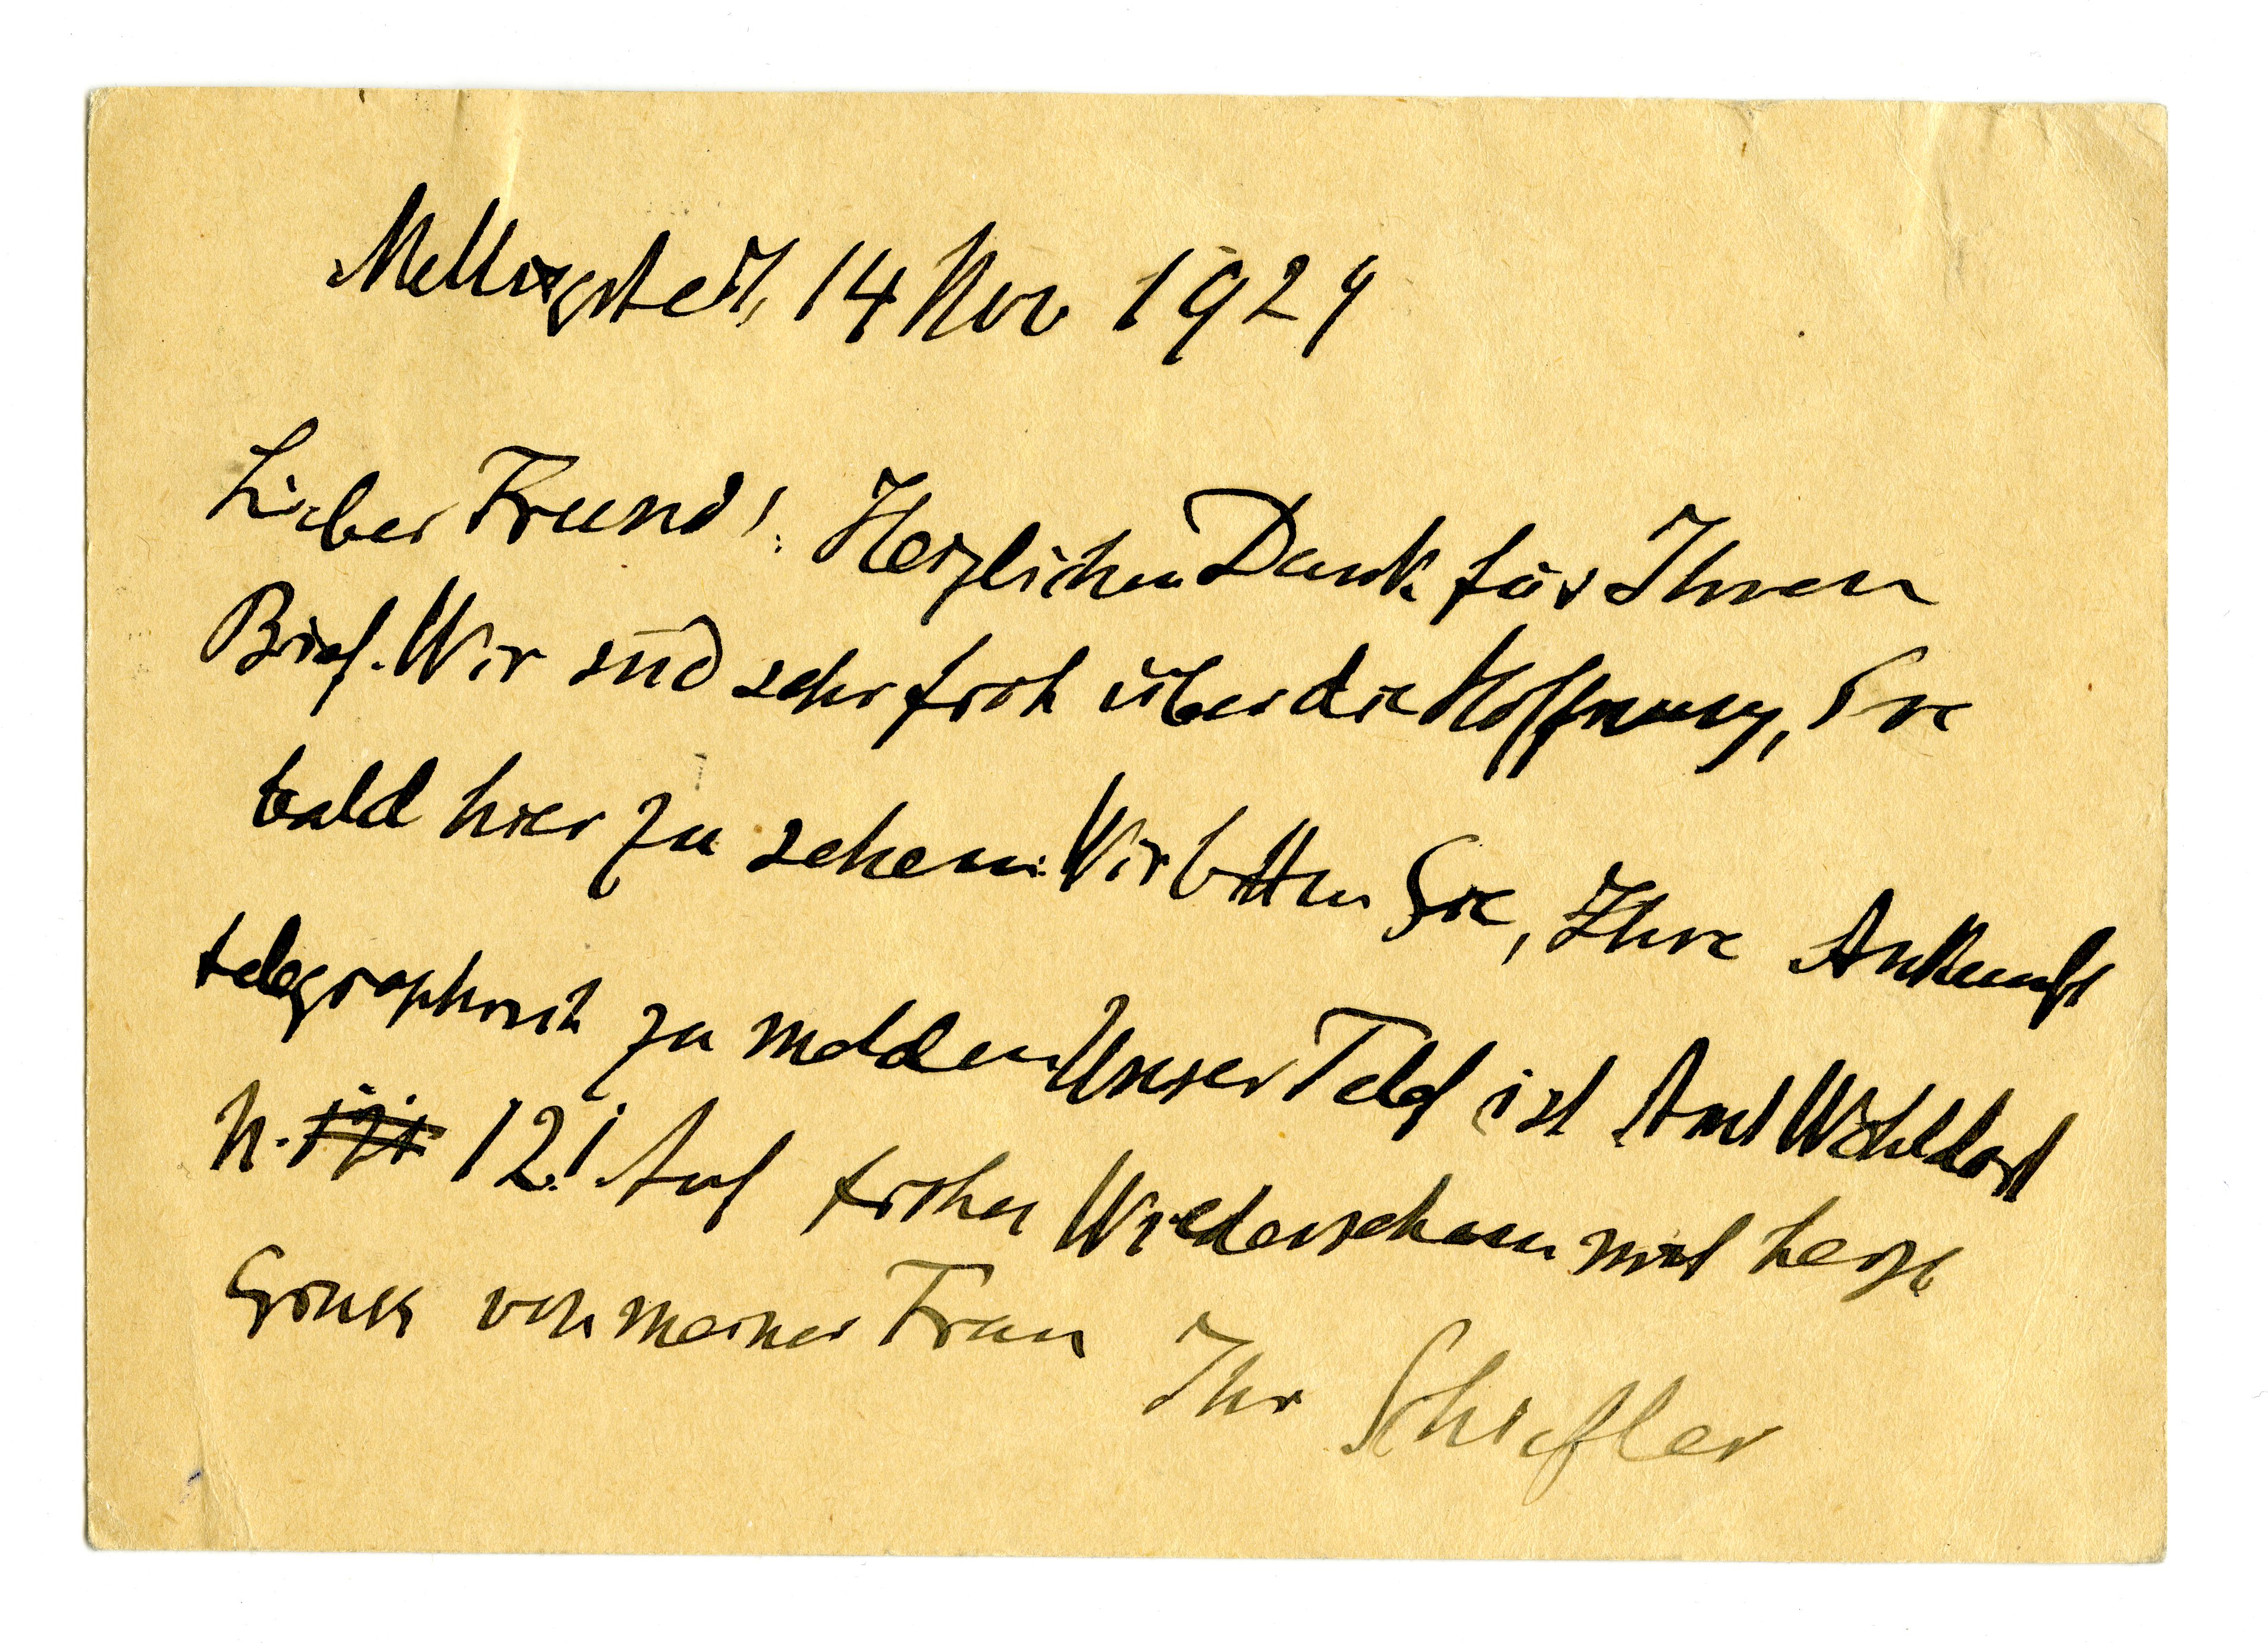 Mellingstedt, 14 Nov 1924
Lieber Freund! Herzlichen Dank für Ihren
Brief. Wir sind sehr froh über die Hoffnung, Sie
bald hier zu sehen. Wir bitten Sie, Ihre Ankunft
telegraphisch zu melden. Unser Telef ist Amt Wohldorf
N. 121 12! Auf frohes Wiedersehen mit herzl
Gruss von meiner Frau Ihr Schiefler